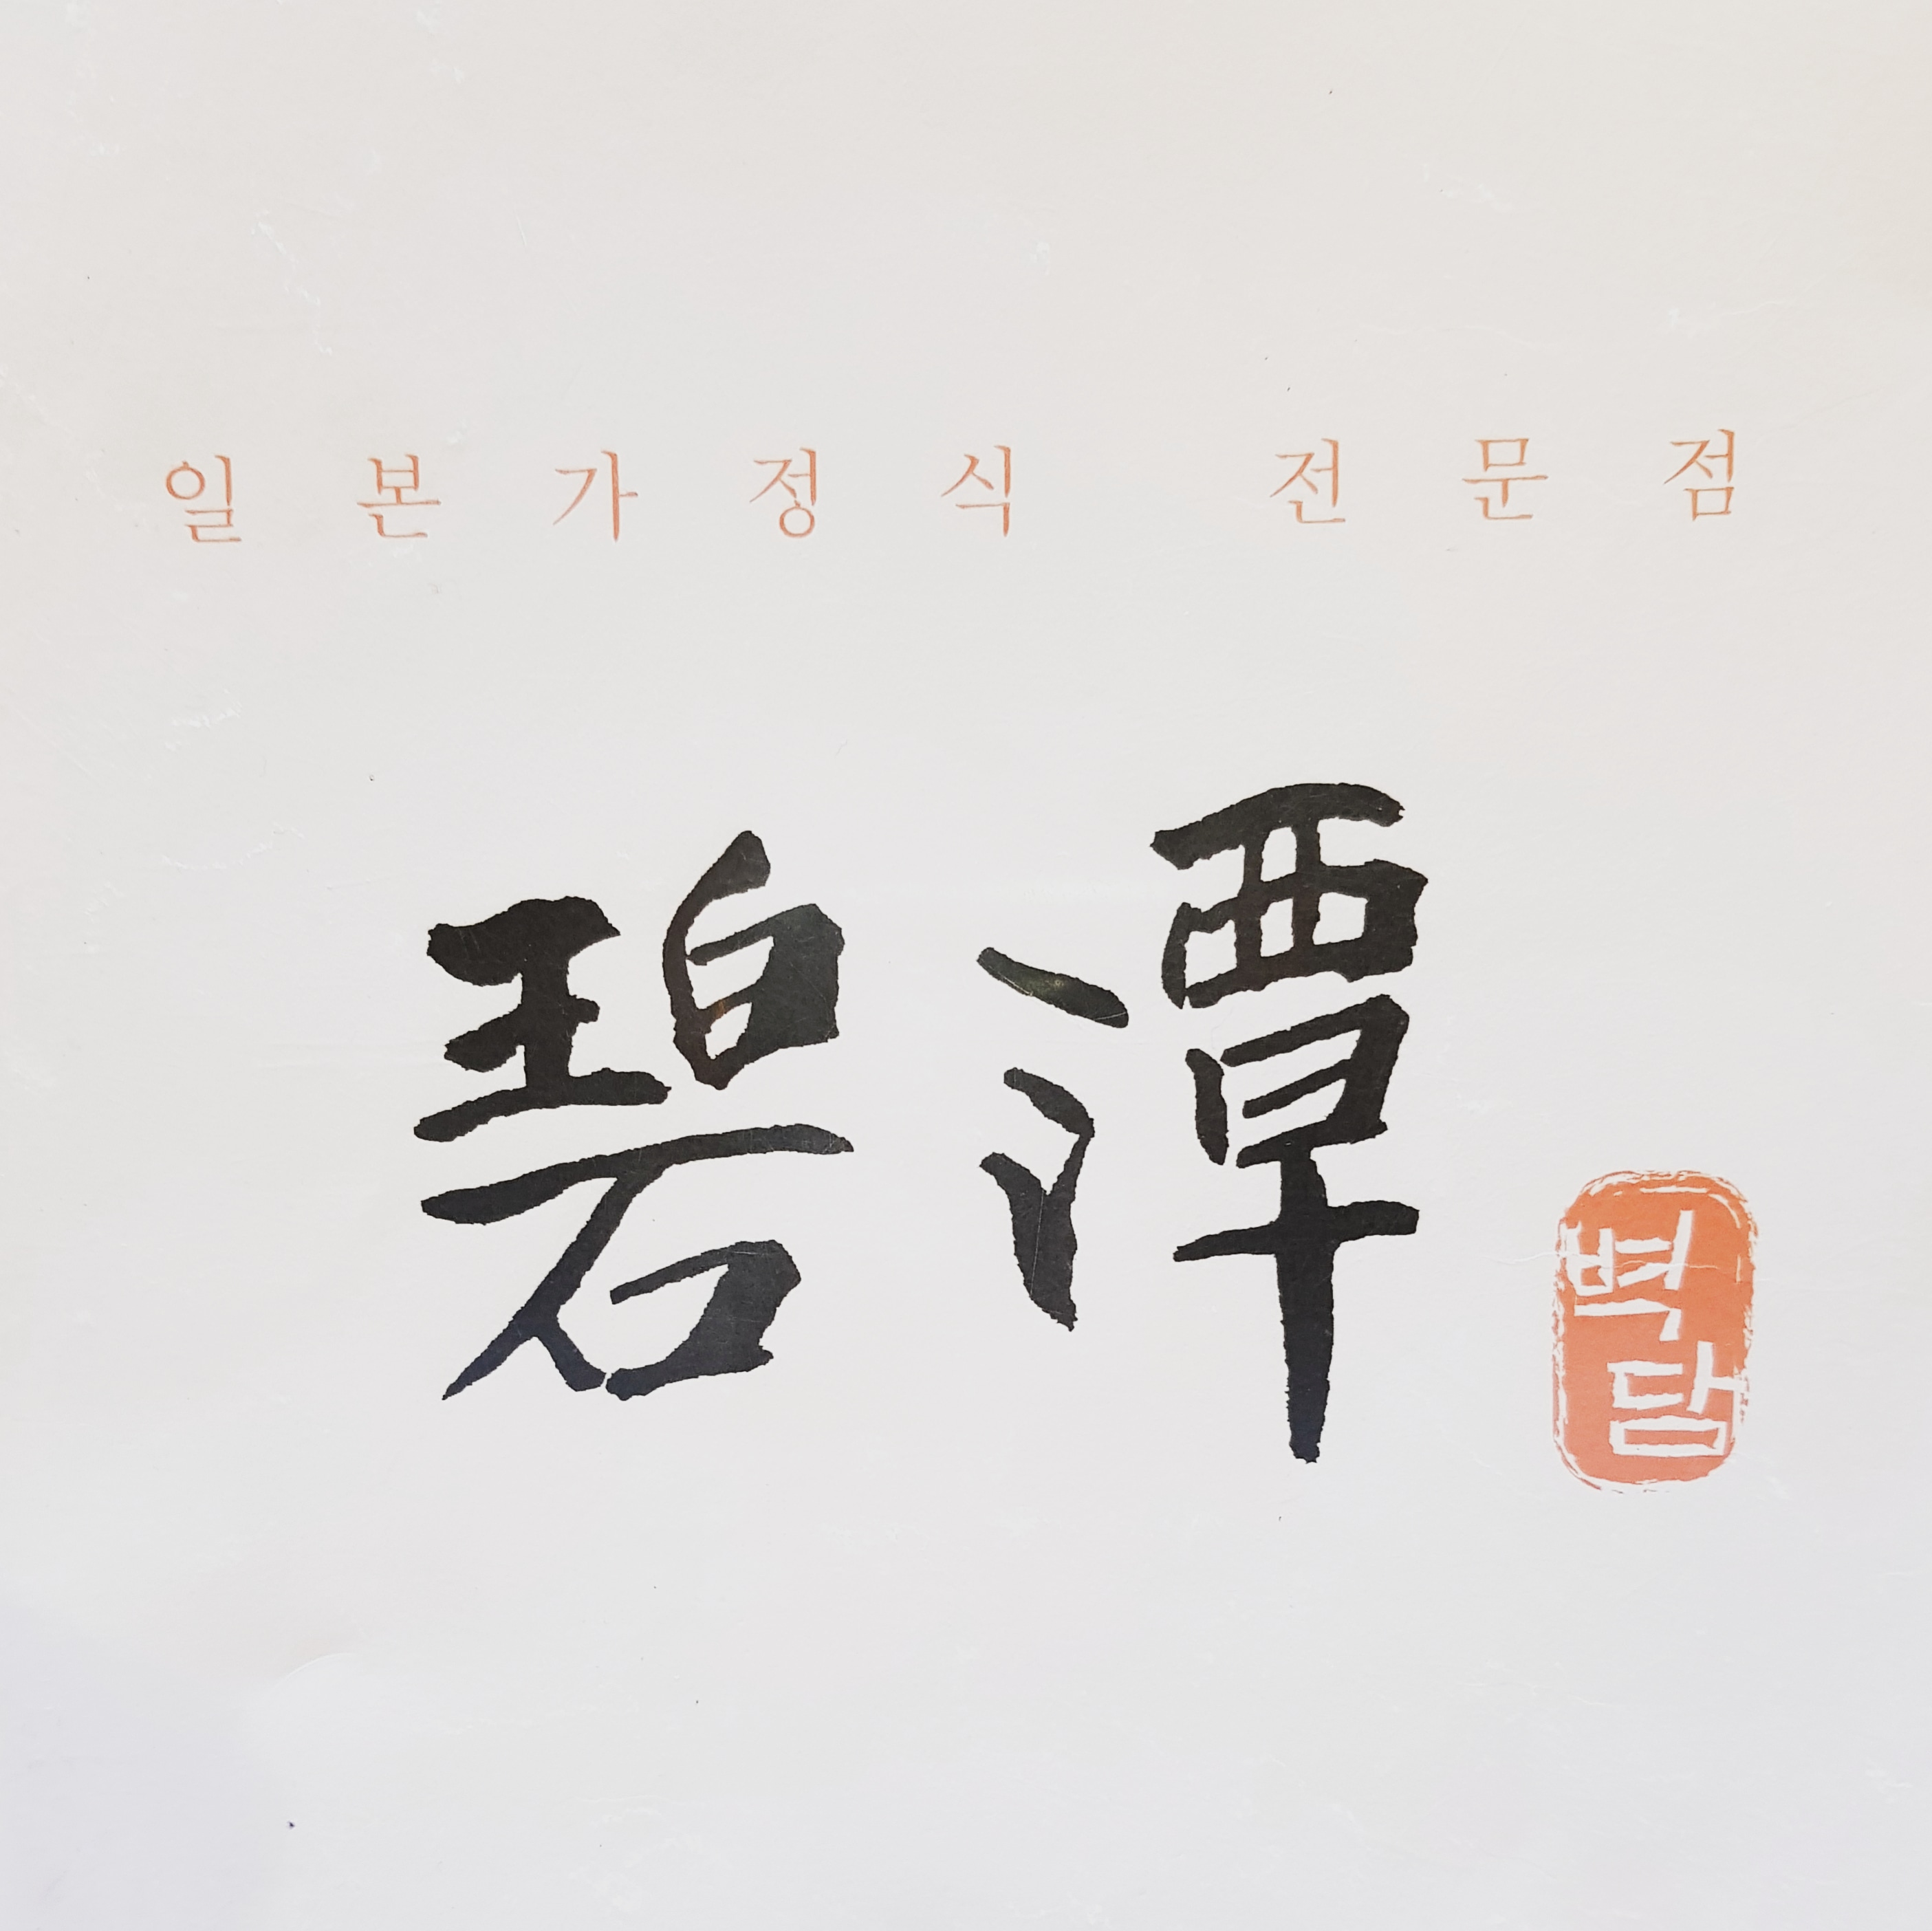 일본가정식 전문점
碧潭
벽담